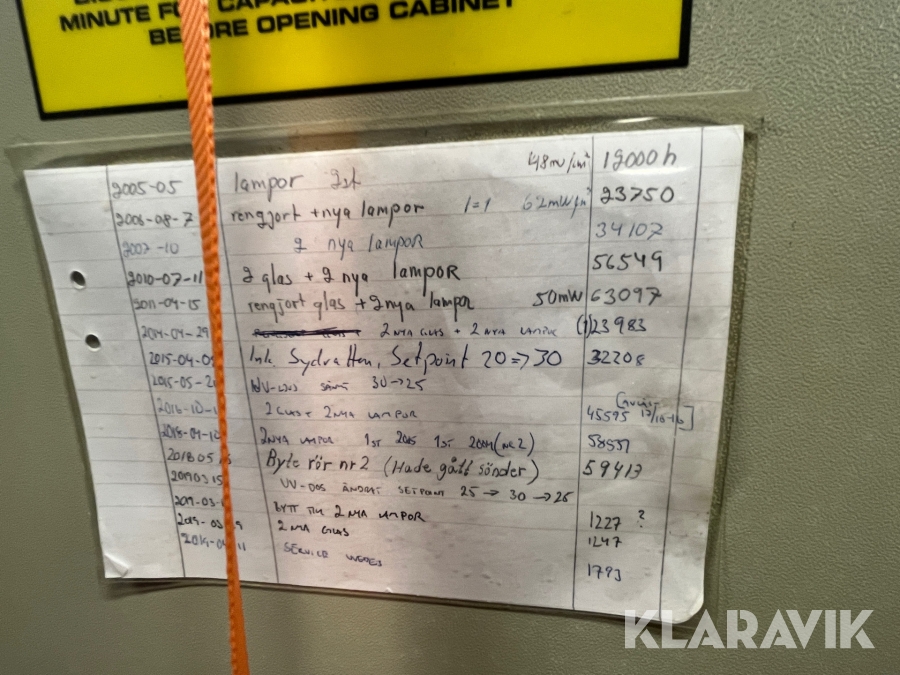 MINUTE FOR CAPACI
BEFORE OPENING CABINET
2005-05 lampor 2st 48mw/cm² 12000h
2006-08-7 rengjort + nya lampor 1=1 62mW/m² 23750
2007-10 2 nya lampor 34107
2010-07-11 2 glas + 2 nya lampor 56549
2011-04-15 rengjort glas + 2nya lampor 50mW 63097
2014-04-29 2 NYA GLAS + 2 NYA LAMPOR (1)23983
2015-04-0 Ink. Sydvatten, Setpoint 20=>30 32208
2015-05-2 UV-DOS SÄNKT 30->25
2016-10-1 2 GLAS + 2 NYA LAMPOR 45595 17/10-16]
2018-04-10 2 NYA LAMPOR 1ST 2005 1ST 2004 (NR2)
2018 05 Byte rör nr 2 (Hade gått sönder) 59413
2019 03 15 UV-DOS ÄNDRAT SETPOINT 25 -> 30 -> 25
2019-03- BYTT TILL 2 NYA LAMPOR 1227 ?
2019-03 9 2 NYA GLAS 1247
2019-0 11 SERVICE 1793
KLARAVIK